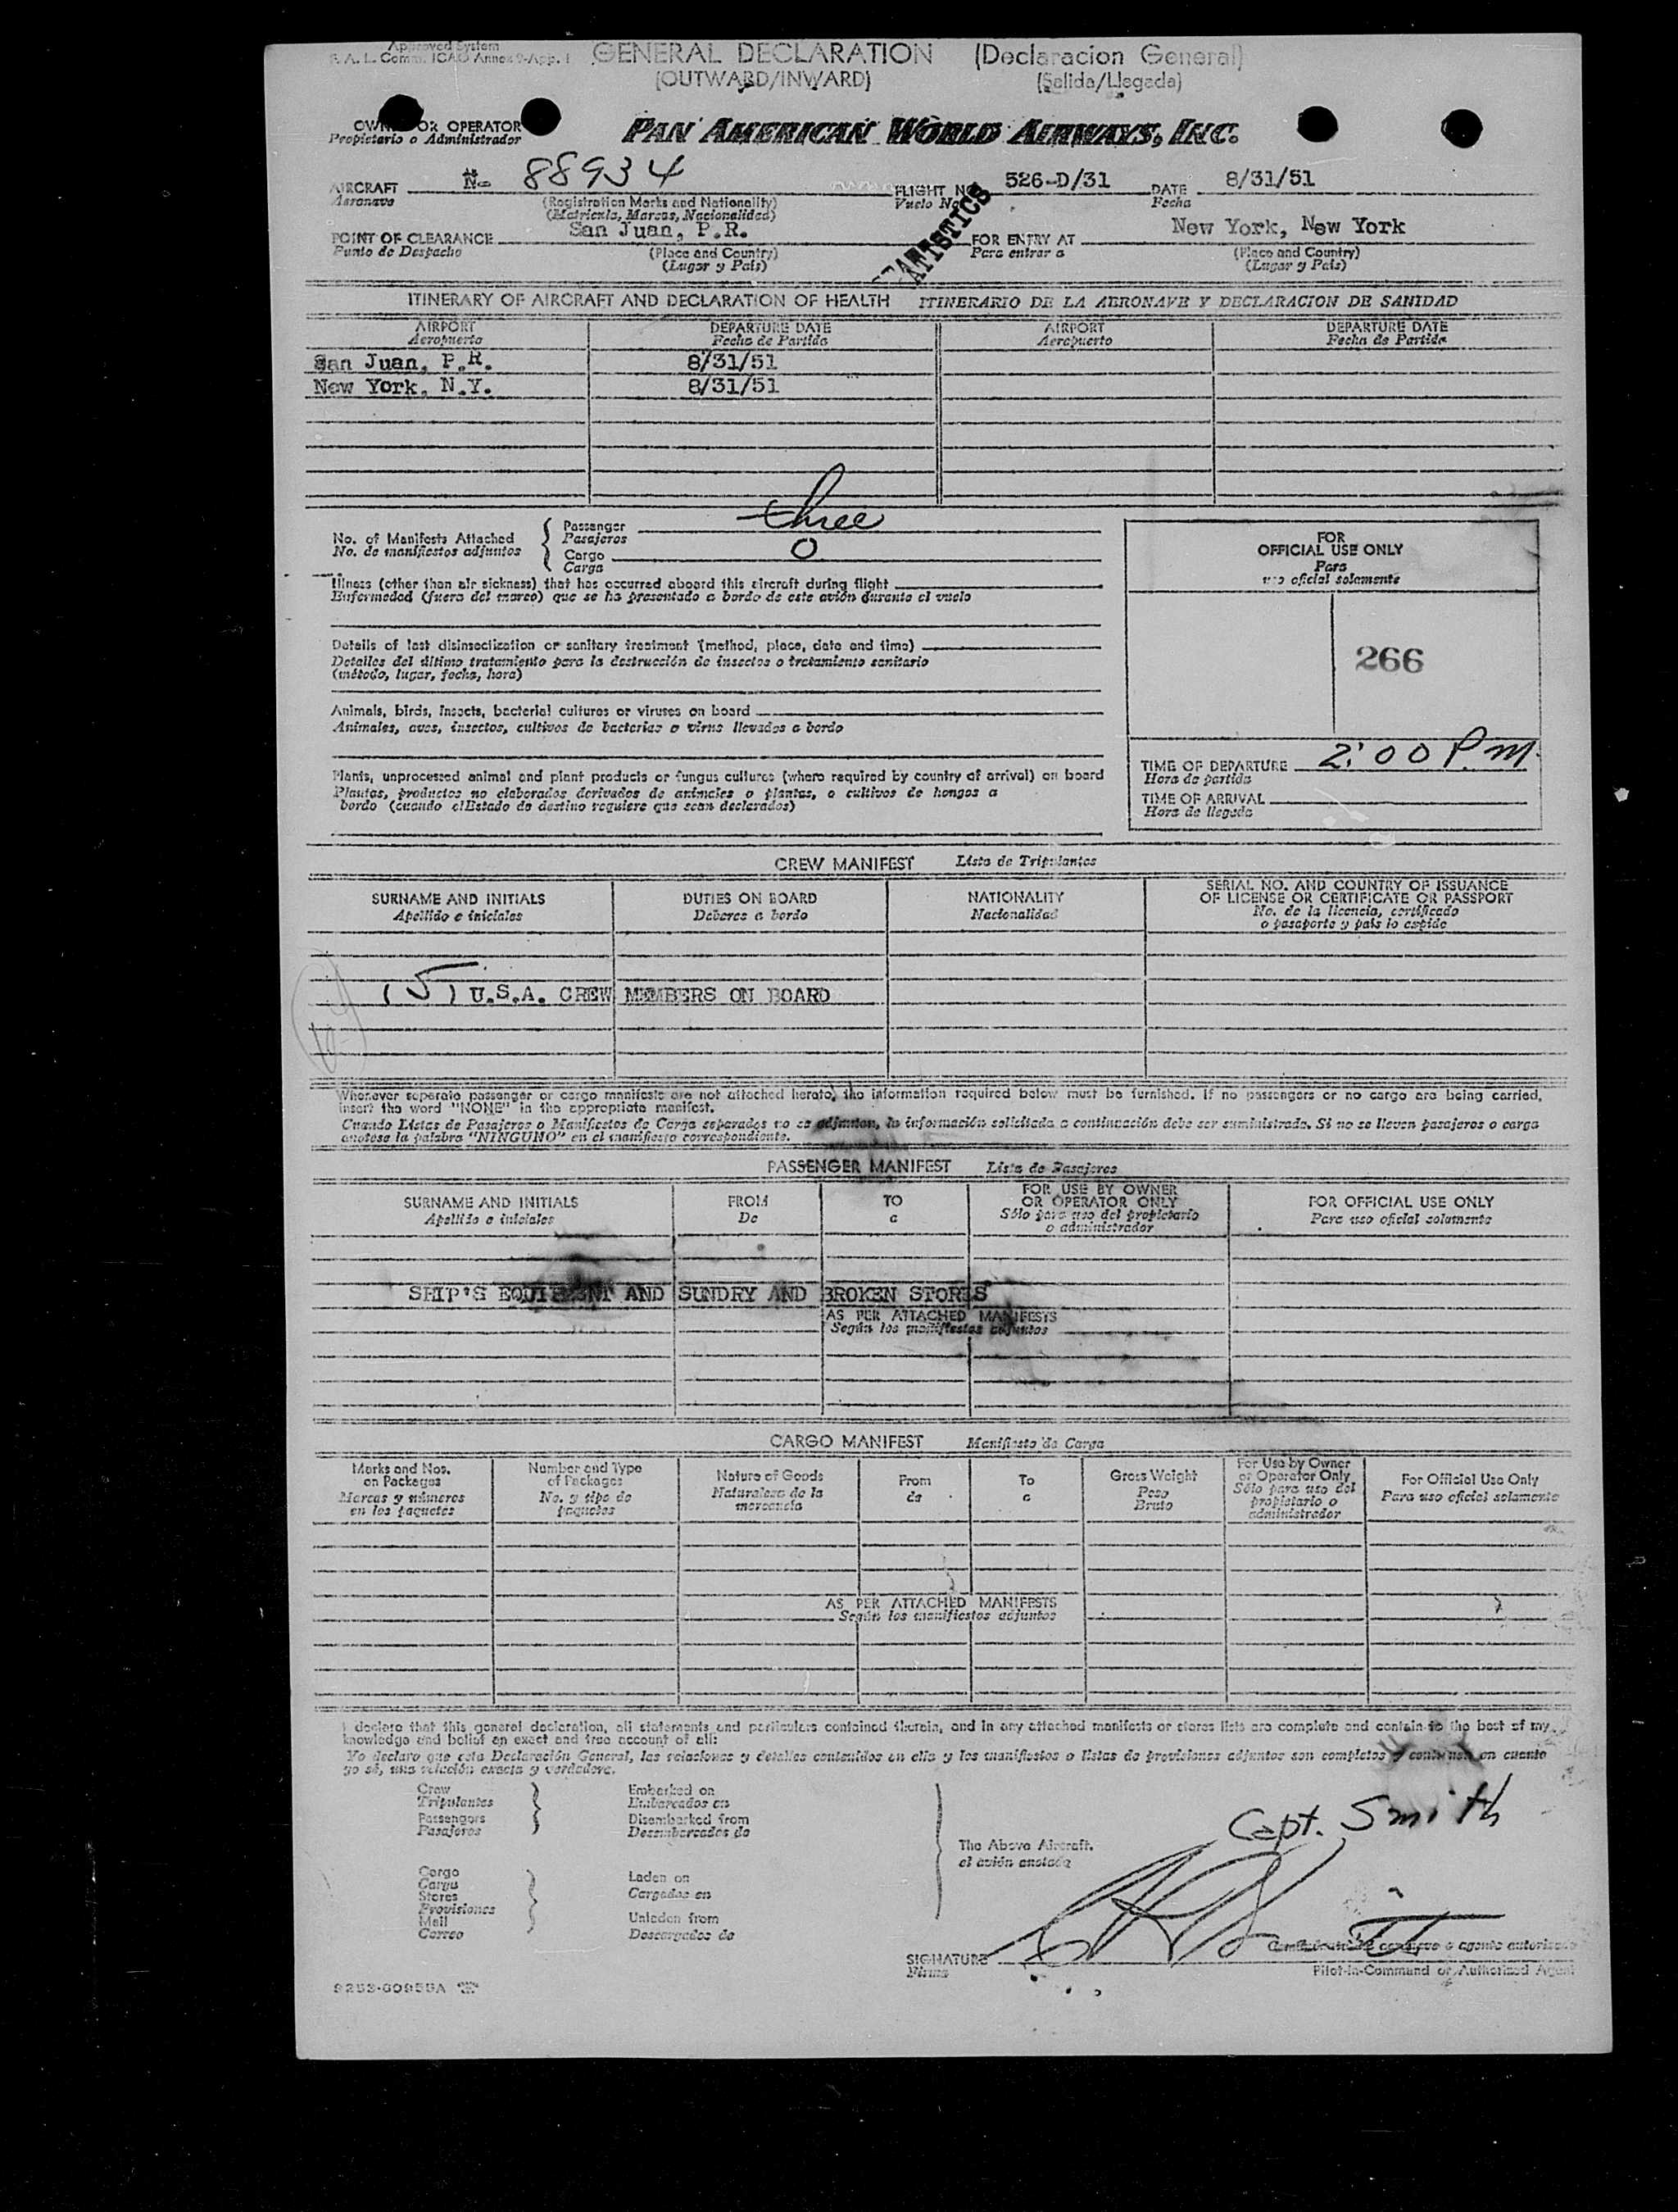 Approved System
F. A. L. Comm. ICAO Annex 9-App. 1
GENERAL DECLARATION (Declaracion General)
(OUTWARD/INWARD) (Salida/Llegada)
OWNER OR OPERATOR
Propietario o Administrador
PAN AMERICAN WORLD AIRWAYS, INC.
AIRCRAFT N- 88934 FLIGHT NO. 526-D/31 DATE 8/31/51
Aeronave (Registration Marks and Nationality) Vuelo No. Fecha
(Matricula, Marcas, Nacionalidad)
STATISTICS
POINT OF CLEARANCE San Juan, P.R. FOR ENTRY AT New York, New York
Punto de Despacho (Place and Country) Para entrar a (Place and Country)
(Lugar y País) (Lugar y País)
ITINERARY OF AIRCRAFT AND DECLARATION OF HEALTH ITINERARIO DE LA AERONAVE Y DECLARACION DE SANIDAD
AIRPORT DEPARTURE DATE AIRPORT DEPARTURE DATE
Aeropuerto Fecha de Partida Aeropuerto Fecha de Partida
San Juan, P.R. 8/31/51
New York, N.Y. 8/31/51
No. of Manifests Attached
No. de manifiestos adjuntos
Passenger three
Pasajeros
Cargo 0
Carga
Illness (other than air sickness) that has occurred aboard this aircraft during flight
Enfermedad (fuera del mareo) que se ha presentado a bordo de este avión durante el vuelo
Details of last disinsectization or sanitary treatment (method, place, date and time)
Detalles del último tratamiento para la destrucción de insectos o tratamiento sanitario
(método, lugar, fecha, hora)
Animals, birds, insects, bacterial cultures or viruses on board
Animales, aves, insectos, cultivos de bacterias o virus llevados a bordo
Plants, unprocessed animal and plant products or fungus cultures (where required by country of arrival) on board
Plantas, productos no elaborados derivados de animales o plantas, o cultivos de hongos a
bordo (cuando elEstado de destino requiere que sean declarados)
FOR
OFFICIAL USE ONLY
Para
uso oficial solamente
266
TIME OF DEPARTURE 2:00 P.M.
Hora de partida
TIME OF ARRIVAL
Hora de llegada
CREW MANIFEST Lista de Tripulantes
SURNAME AND INITIALS DUTIES ON BOARD NATIONALITY SERIAL NO. AND COUNTRY OF ISSUANCE
OF LICENSE OR CERTIFICATE OR PASSPORT
Apellido e iniciales Deberes a bordo Nacionalidad No. de la licencia, certificado
o pasaporte y país lo expide
(5) U.S.A. CREW MEMBERS ON BOARD
Whenever separate passenger or cargo manifests are not attached hereto, the information required below must be furnished. If no passengers or no cargo are being carried,
insert the word "NONE" in the appropriate manifest.
Cuando Listas de Pasajeros o Manifiestos de Carga separados no se adjuntan, la información solicitada a continuación debe ser suministrada. Si no se llevan pasajeros o carga
anótese la palabra "NINGUNO" en el manifiesto correspondiente.
PASSENGER MANIFEST Lista de Pasajeros
SURNAME AND INITIALS FROM TO FOR USE BY OWNER
OR OPERATOR ONLY FOR OFFICIAL USE ONLY
Apellido e iniciales De a Sólo para uso del propietario
o administrador Para uso oficial solamente
SHIP'S EQUIPMENT AND SUNDRY AND BROKEN STORES
AS PER ATTACHED MANIFESTS
Según los manifiestos adjuntos
CARGO MANIFEST Manifiesto de Carga
Marks and Nos.
on Packages
Marcas y números
en los paquetes
Number and Type
of Packages
No. y tipo de
paquetes
Nature of Goods
Naturaleza de la
mercancía
From
de
To
a
Gross Weight
Peso
Bruto
For Use by Owner
or Operator Only
Sólo para uso del
propietario o
administrador
For Official Use Only
Para uso oficial solamente
AS PER ATTACHED MANIFESTS
Según los manifiestos adjuntos
I declare that this general declaration, all statements and particulars contained therein, and in any attached manifests or stores lists are complete and contain to the best of my
knowledge and belief an exact and true account of all:
Yo declaro que esta Declaración General, las relaciones y detalles contenidos en ella y los manifiestos o listas de provisiones adjuntos son completos y contienen en cuanto
yo sé, una relación exacta y verdadera.
Crew
Tripulantes
Passengers
Pasajeros
Embarked on
Embarcados en
Disembarked from
Desembarcados de
Cargo
Carga
Stores
Provisiones
Mail
Correo
Laden on
Cargados en
Unladen from
Descargados de
The Above Aircraft.
el avión anotado
Capt. Smith
SIGNATURE
Firma
o agente autorizado
Pilot-in-Command or Authorized Agent